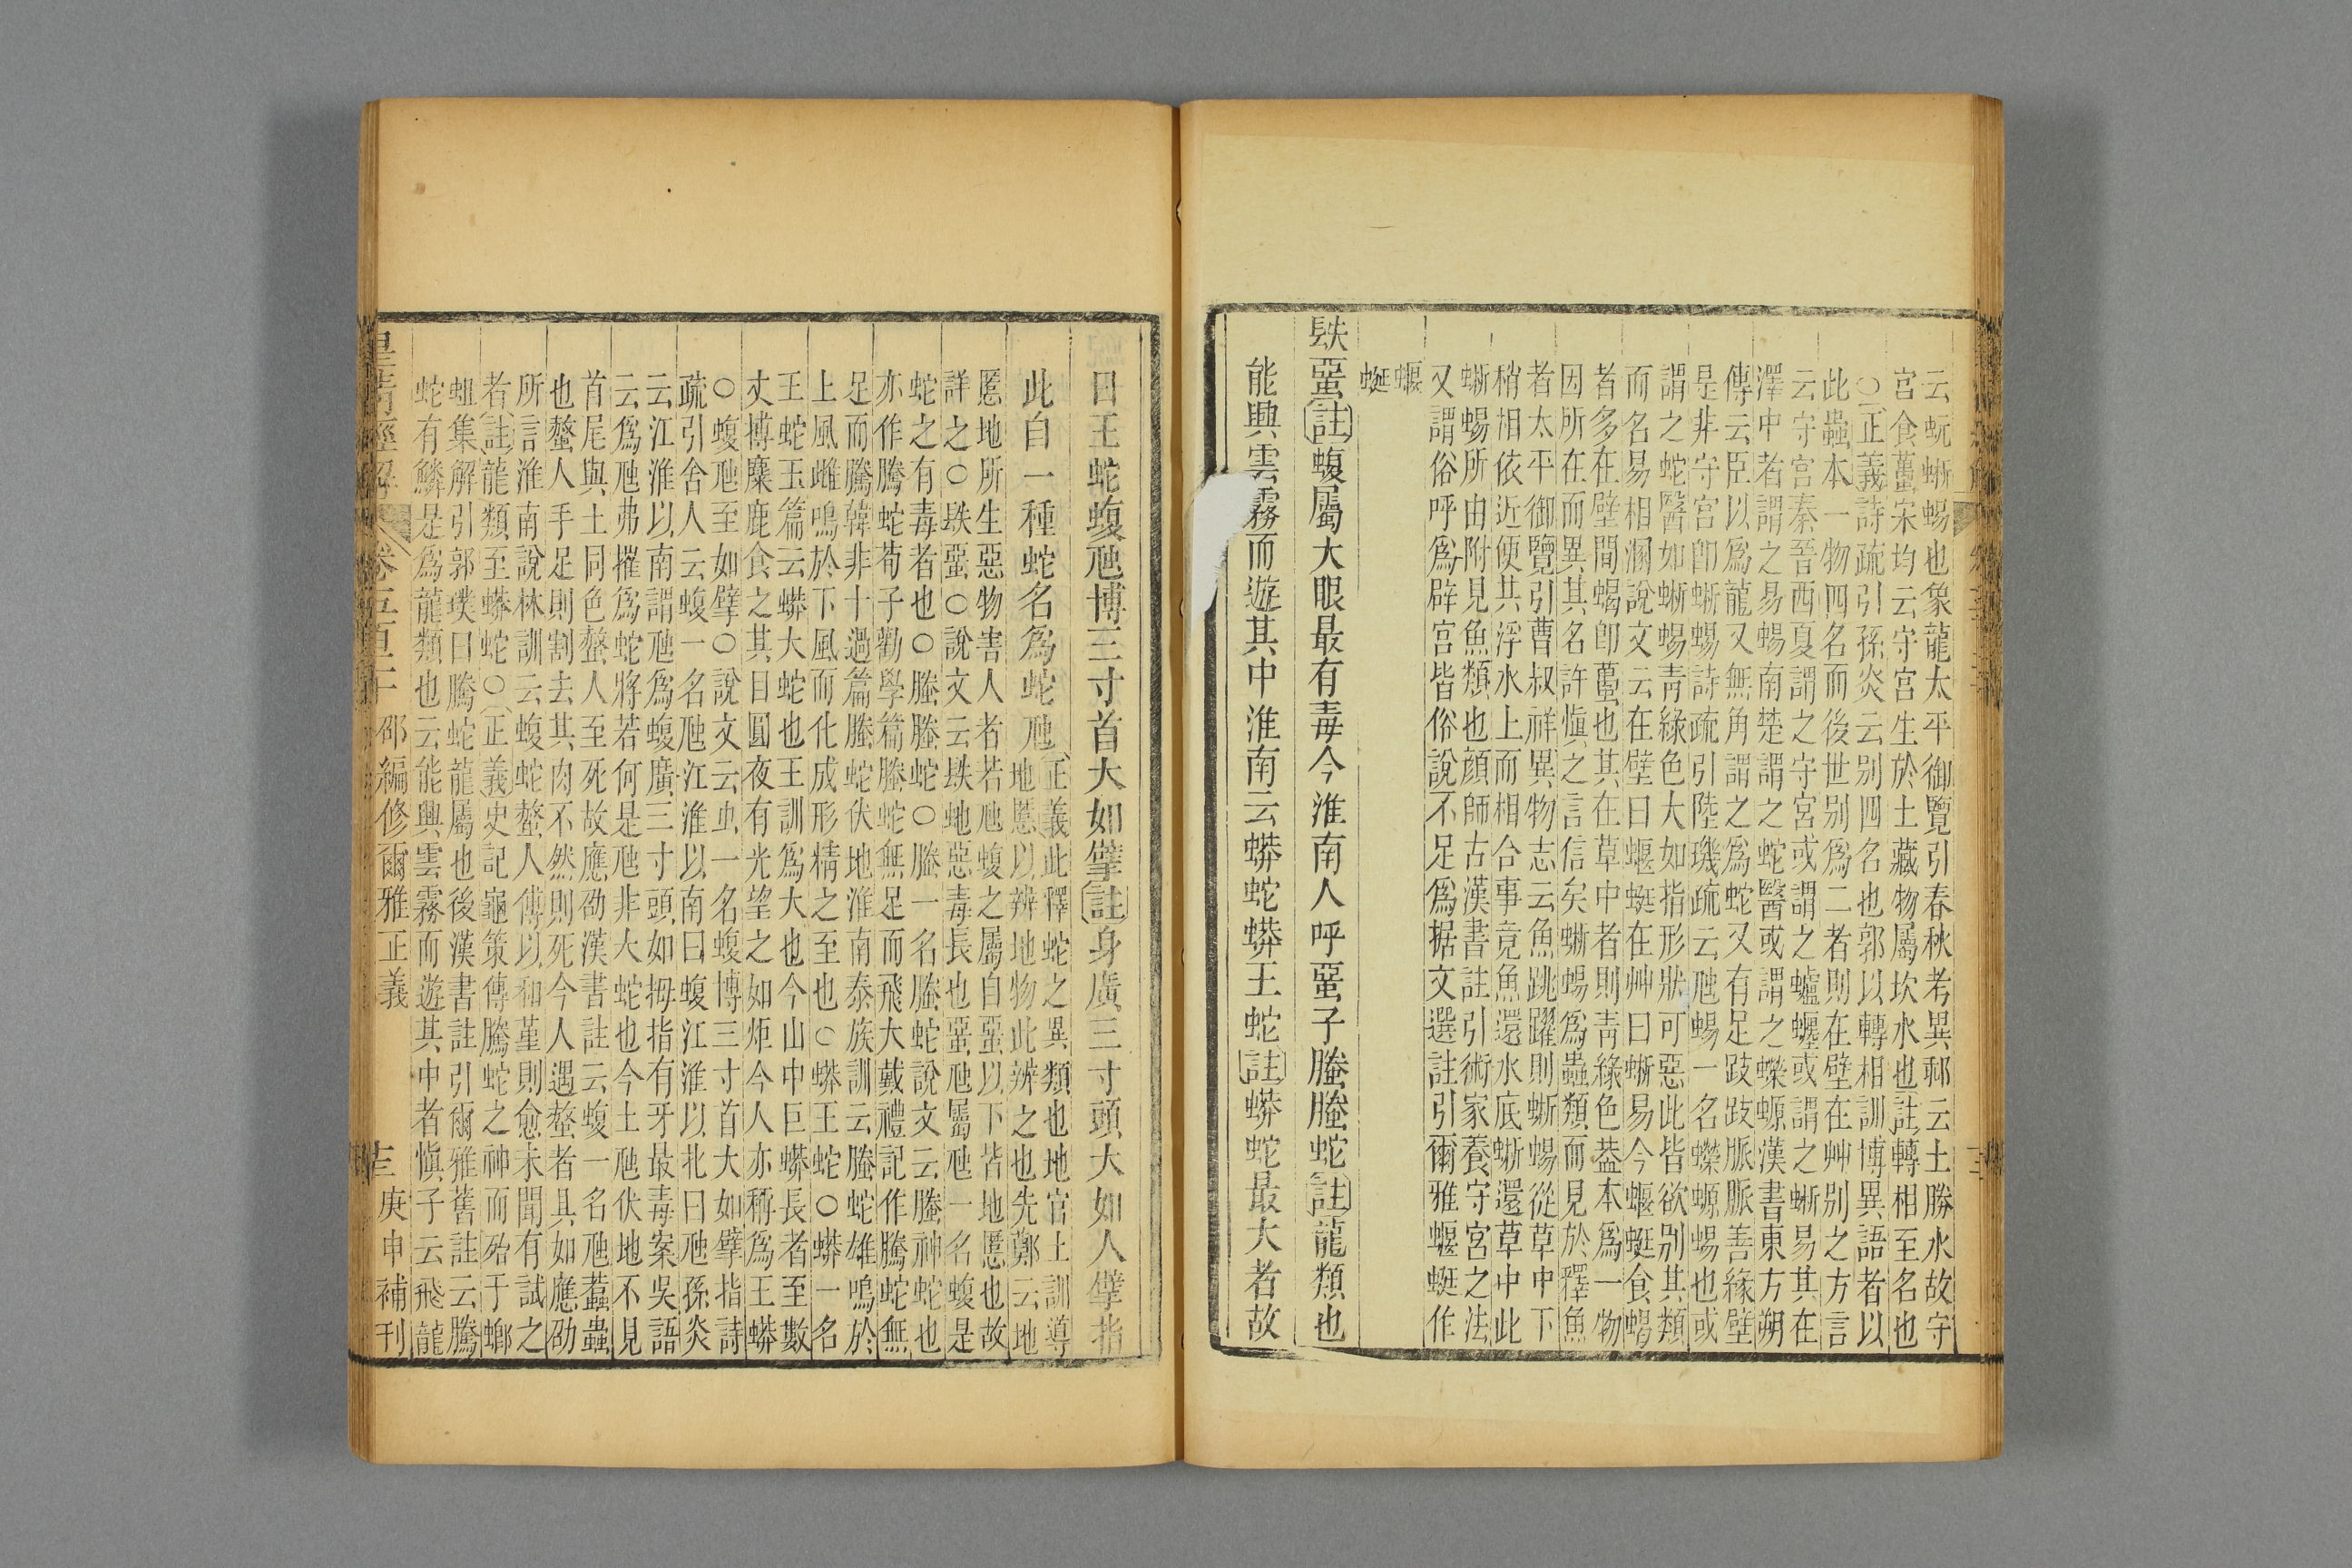 云蚖蜥蜴也象龍太平御覽引春秋考異郵云土勝水故守
宮食蠆宋均云守宮生於土藏物屬坎水也註轉相至名也
○正義詩疏引孫炎云別四名也郭以轉相訓博異語者以
此蟲本一物四名而後世別為二者則在壁在艸別之方言
云守宮秦晉西夏謂之守宮或謂之蠦𧕦或謂之蜥易其在
澤中者謂之易蜴南楚謂之蛇醫或謂之蠑螈漢書東方朔
傳云臣以為龍又無角謂之為蛇又有足跂跂脈脈善緣壁
是非守宮卽蜥蜴詩疏引陸璣疏云虺蜴一名蠑螈蜴也或
謂之蛇醫如蜥蜴青綠色大如指形狀可惡此皆欲別其類
而名易相溷說文云在壁曰蝘蜓在艸曰蜥易今蝘蜓食蝎
者多在壁間蝎卽蠆也其在草中者則青綠色葢本為一物
因所在而異其名許慎之言信矣蜥蜴為蟲類而見於釋魚
者太平御覽引曹叔祥異物志云魚跳躍則蜥蜴從草中下
稍相依近便其浮水上而相合事竟魚還水底蜥還草中此
蜥蜴所由附見魚類也顏師古漢書註引術家養守宮之法
又謂俗呼為辟宮皆俗說不足為据文選註引爾雅蝘蜓作
蝘
蜓
镻蝁註蝮屬大眼最有毒今淮南人呼蝁子螣螣蛇註龍類也
能興雲霧而遊其中淮南云蟒蛇蟒王蛇註蟒蛇最大者故
曰王蛇蝮虺博三寸首大如擘註身廣三寸頭大如人擘指
此自一種蛇名為蛇虺
正義此釋蛇之異類也地官土訓導
地慝以辨地物此辨之也先鄭云地
慝地所生惡物害人者若虺蝮之屬自蝁以下皆地慝也故
詳之○镻蝁○說文云镻虵惡毒長也蝁虺屬虺一名蝮是
蛇之有毒者也○螣螣蛇○螣一名螣蛇說文云螣神蛇也
亦作騰蛇荀子勸學篇螣蛇無足而飛大戴禮記作騰蛇無
足而騰韓非十過篇螣蛇伏地淮南泰族訓云螣蛇雄鳴於
上風雌鳴於下風而化成形精之至也○蟒王蛇○蟒一名
王蛇玉篇云蟒大蛇也王訓為大也今山中巨蟒長者至數
丈搏麋鹿食之其目圓夜有光望之如炬今人亦稱為王蟒
○蝮虺至如擘○說文云虫一名蝮博三寸首大如擘指詩
疏引舍人云蝮一名虺江淮以南曰蝮江淮以北曰虺孫炎
云江淮以南謂虺為蝮廣三寸頭如拇指有牙最毒案吳語
云為虺弗摧為蛇將若何是虺非大蛇也今土虺伏地不見
首尾與土同色螫人至死故應劭漢書註云蝮一名虺蠚蟲
也螫人手足則割去其肉不然則死今人遇螫者具如應劭
所言淮南說林訓云蝮蛇螫人傅以和堇則愈未聞有試之
者註龍類至蟒蛇○正義史記龜策傳騰蛇之神而殆于螂
蛆集解引郭璞曰騰蛇龍屬也後漢書註引爾雅舊註云騰
蛇有鱗是為龍類也云能興雲霧而遊其中者慎子云飛龍
皇清經解 卷五百十 邵編修爾雅正義 庚申補刊